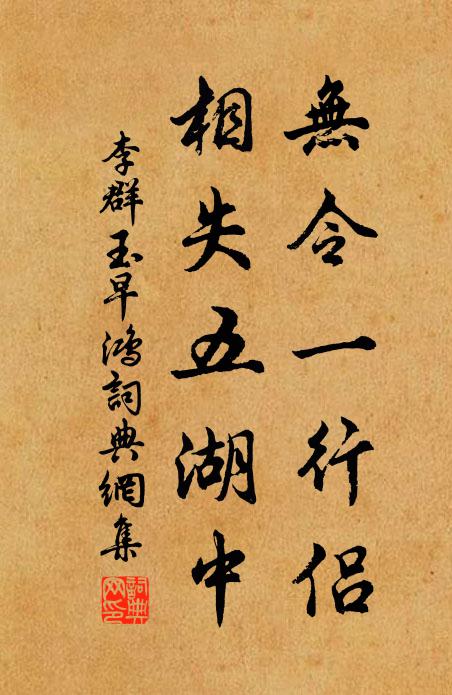 無令一行侶
相失五湖中
李群玉早鴻詞典網集
詞典网印